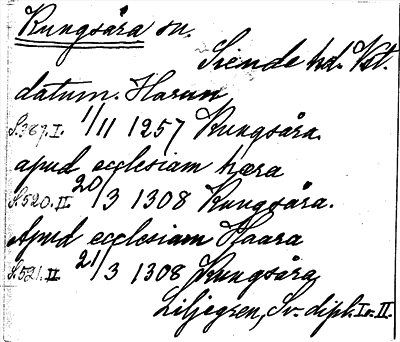 Kungsåra sn.
Siende hd. Vst.
datum. Harun
S.387.I. 1/11 1257 Kungsåra.
apud ecclesiam hæra
S.520.II 20/3 1308 Kungsåra.
Apud ecclesiam Haara
S.521.II 21/3 1308 Kungsåra
Liljegren, Sv. dipl. I o. II.